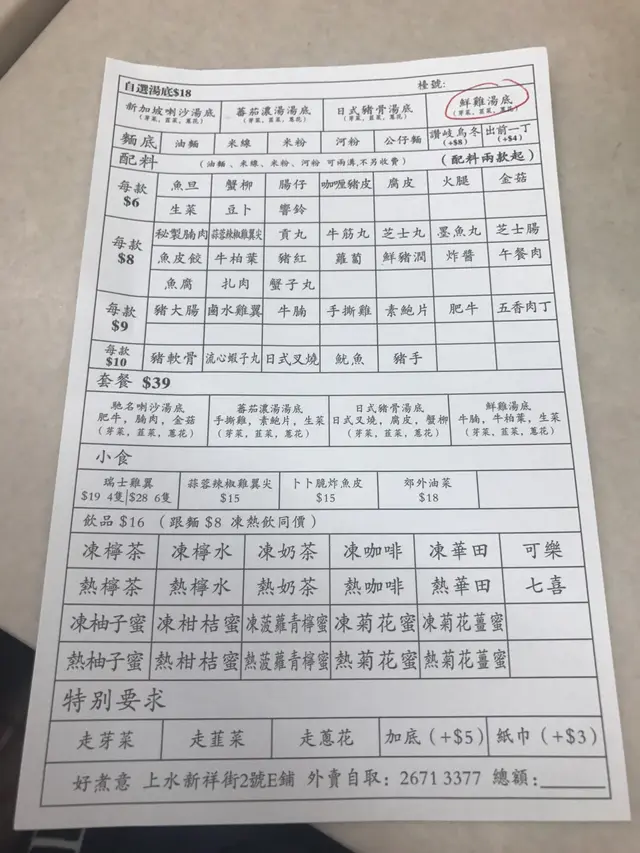 自選湯底$18 檯號:
新加坡喇沙湯底 蕃茄濃湯湯底 日式豬骨湯底 鮮雞湯底
(芽菜, 韮菜, 蔥花) (芽菜, 韮菜, 蔥花) (芽菜, 韮菜, 蔥花) (芽菜, 韮菜, 蔥花)
麵底 油麵 米線 米粉 河粉 公仔麵 讚岐烏冬 (+$8) 出前一丁 (+$4)
配料 (油麵、米線、米粉、河粉 可兩溝,不另收費) (配料兩款起)
每款 $6 魚旦 蟹柳 腸仔 咖喱豬皮 腐皮 火腿 金菇
生菜 豆卜 響鈴
每款 $8 秘製腩肉 蒜蓉辣椒雞翼尖 貢丸 牛筋丸 芝士丸 墨魚丸 芝士腸
魚皮餃 牛柏葉 豬紅 蘿蔔 鮮豬潤 炸醬 午餐肉
魚腐 扎肉 蟹子丸
每款 $9 豬大腸 鹵水雞翼 牛腩 手撕雞 素鮑片 肥牛 五香肉丁
每款 $10 豬軟骨 流心蝦子丸 日式叉燒 魷魚 豬手
套餐 $39
馳名喇沙湯底 蕃茄濃湯湯底 日式豬骨湯底 鮮雞湯底
肥牛, 腩肉, 金菇 手撕雞, 素鮑片, 生菜 日式叉燒, 腐皮, 蟹柳 牛腩, 牛柏葉, 生菜
(芽菜, 韮菜, 蔥花) (芽菜, 韮菜, 蔥花) (芽菜, 韮菜, 蔥花) (芽菜, 韮菜, 蔥花)
小食
瑞士雞翼 蒜蓉辣椒雞翼尖 卜卜脆炸魚皮 郊外油菜
$19 4隻|$28 6隻 $15 $15 $18
飲品 $16 (跟麵 $8 凍熱飲同價)
凍檸茶 凍檸水 凍奶茶 凍咖啡 凍華田 可樂
熱檸茶 熱檸水 熱奶茶 熱咖啡 熱華田 七喜
凍柚子蜜 凍柑桔蜜 凍菠蘿青檸蜜 凍菊花蜜 凍菊花薑蜜
熱柚子蜜 熱柑桔蜜 熱菠蘿青檸蜜 熱菊花蜜 熱菊花薑蜜
特別要求
走芽菜 走韮菜 走蔥花 加底(+$5) 紙巾(+$3)
好煮意 上水新祥街2號E鋪 外賣自取: 2671 3377 總額: